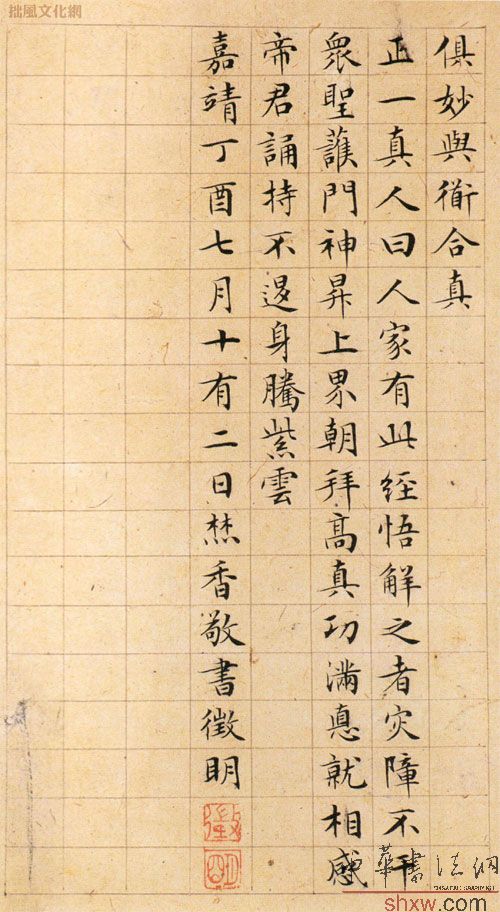 拙風文化網
俱妙與衜合真
正一真人曰人家有此經悟解之者灾障不干
衆聖護門神昇上界朝拜高真功滿悳就相感
帝君誦持不退身騰紫雲
嘉靖丁酉七月十有二日焚香敬書徵明
徵明
中華書法網
shxw.com